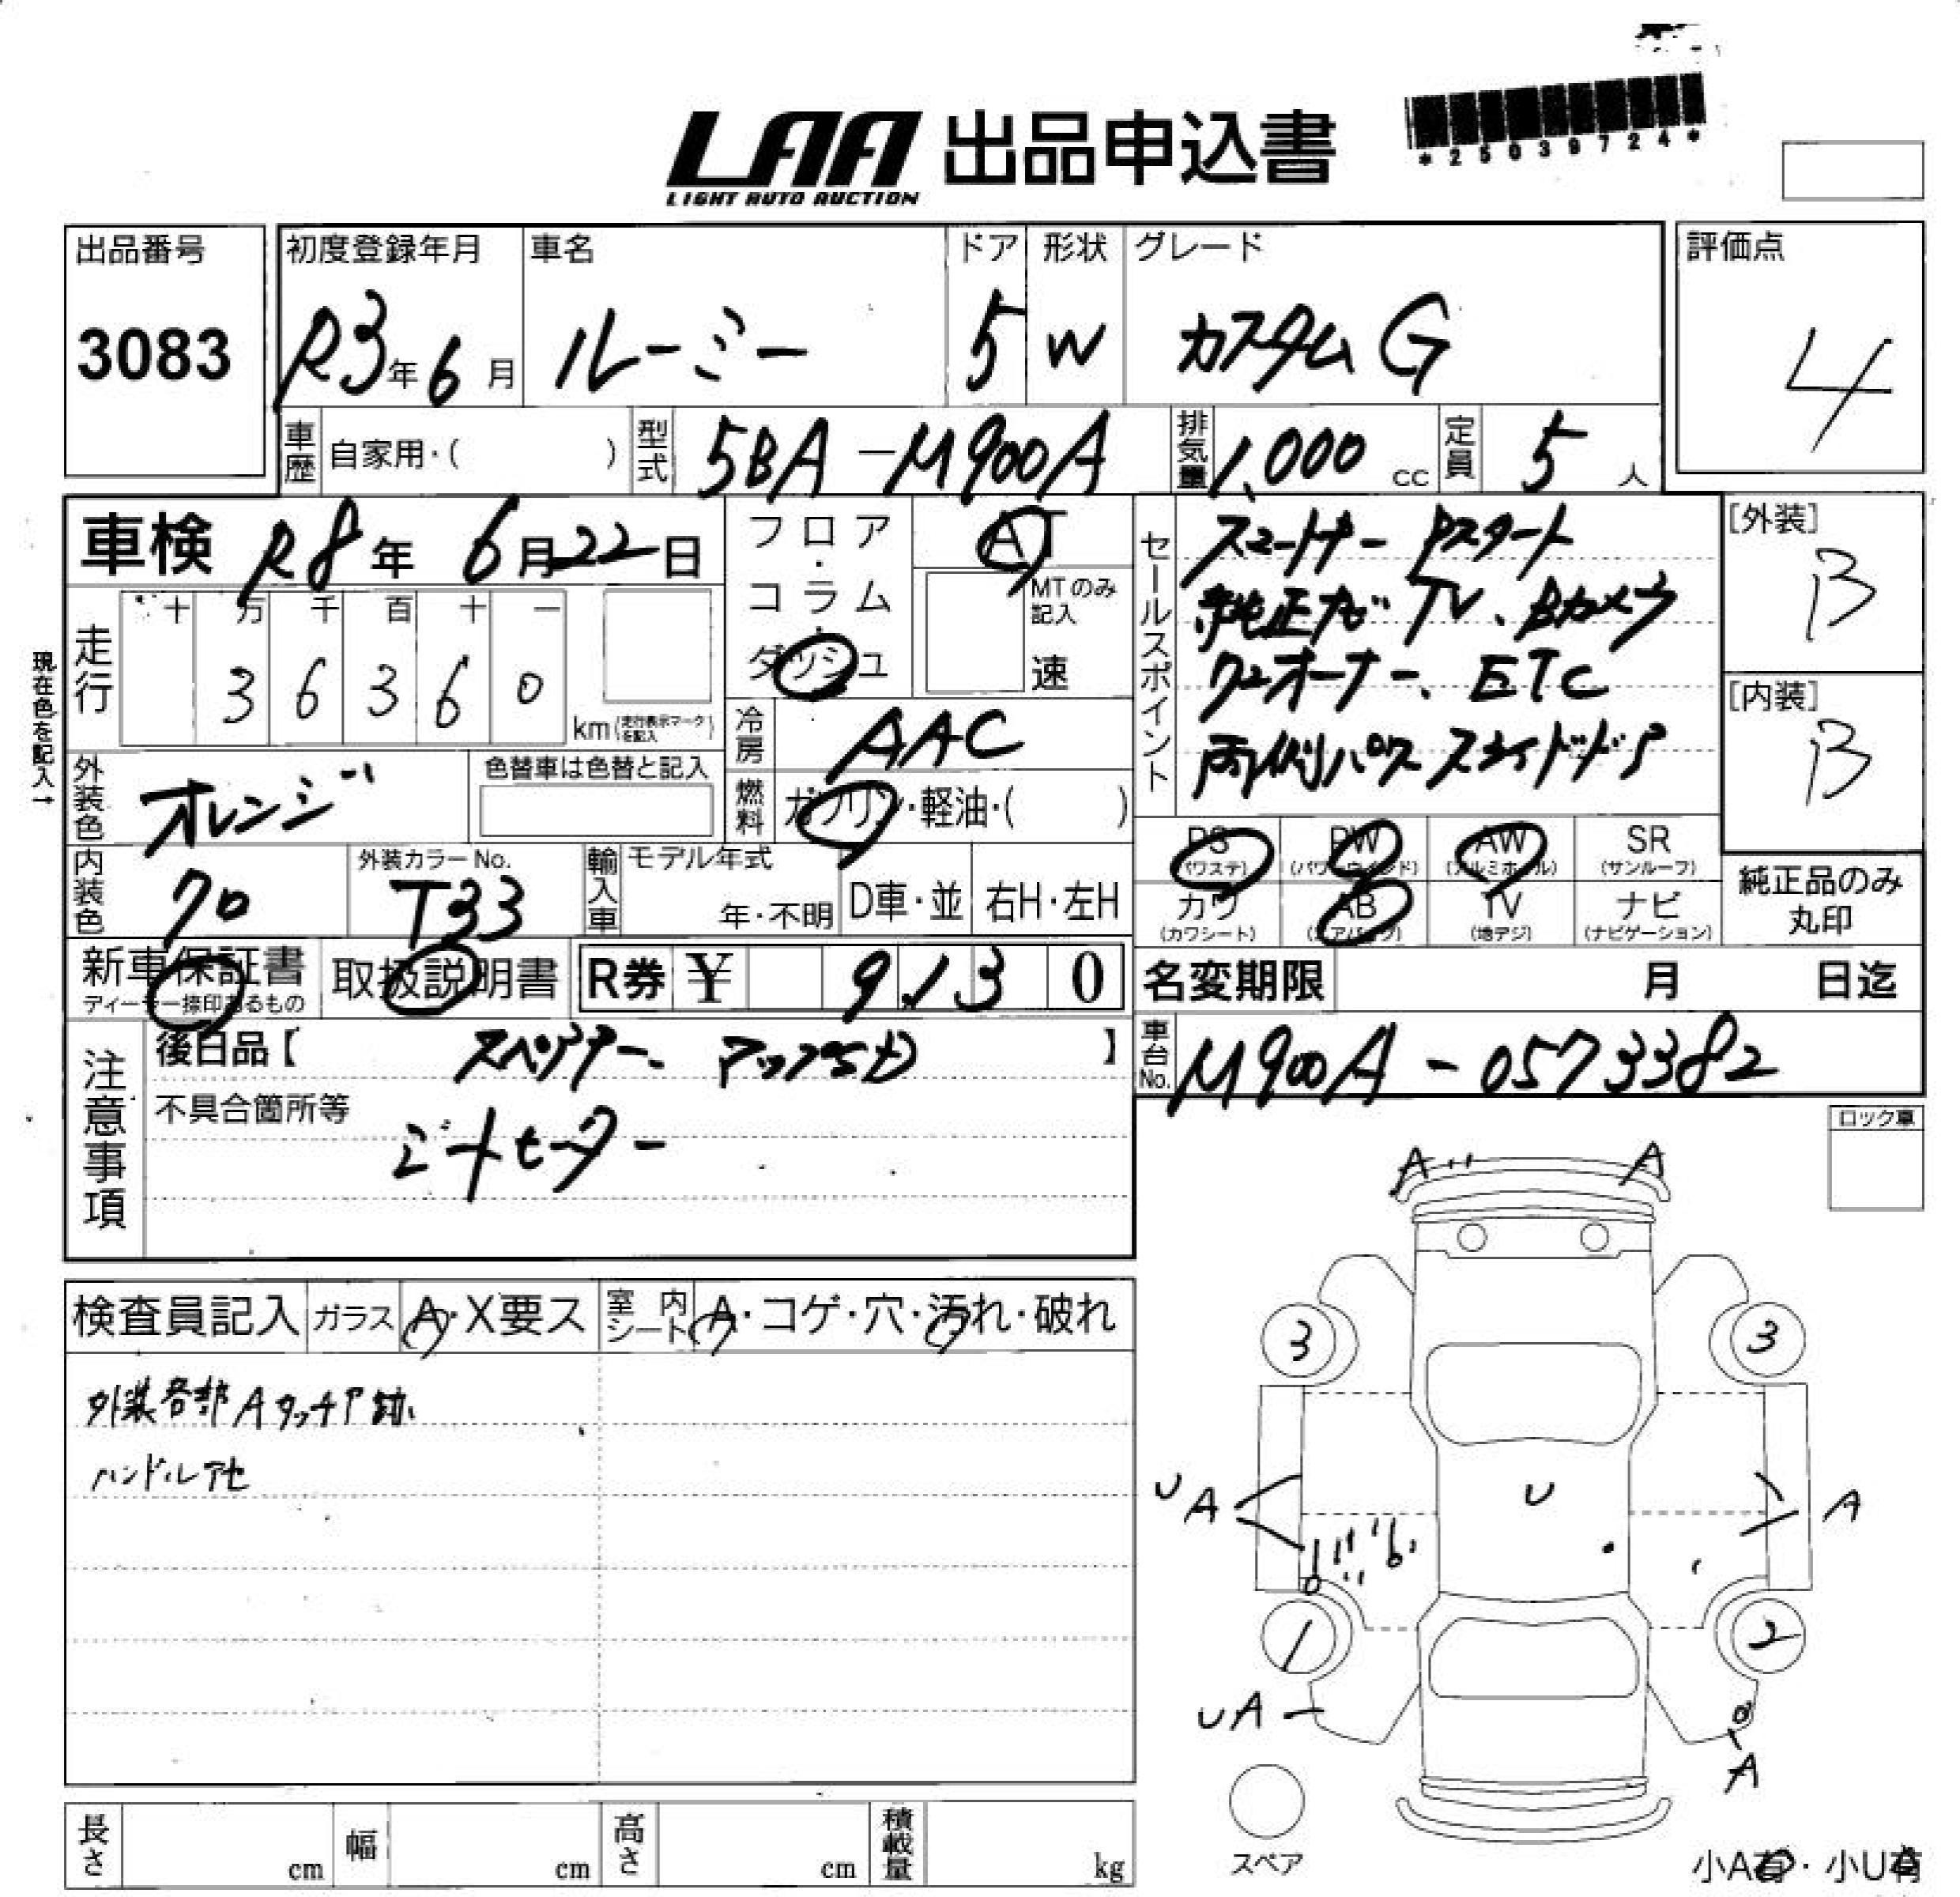 LAA 出品申込書
LIGHT AUTO AUCTION
*25039724*
出品番号
3083
初度登録年月
R3年6月
車名
ルーミー
ドア
5
形状
W
グレード
カスタムG
評価点
4
車歴 自家用・( )
型式 5BA-M900A
排気量 1,000 cc
定員 5 人
車検 R8年 6月22日
フロア・コラム・ダッシュ
AT
MTのみ記入
速
現在色を記入→
走行
十 万 千 百 十 一
3 6 3 6 0
km(走行表示マークを記入)
冷房 AAC
燃料 ガソリン・軽油・( )
外装色 オレンジ
色替車は色替と記入
内装色 クロ
外装カラーNo.
T33
輸入車
モデル年式
年・不明
D車・並
右H・左H
セールスポイント
スマートキー Pスタート
純正ナビ・TV、Bカメラ
ワンオーナー、ETC
両側パワースライドドア
[外装]
B
[内装]
B
PS (パワステ)
PW (パワーウインド)
AW (アルミホイール)
SR (サンルーフ)
カワ (カワシート)
AB (エアバッグ)
TV (地デジ)
ナビ (ナビゲーション)
純正品のみ丸印
新車保証書
ディーラー捺印あるもの
取扱説明書
R券 ¥ 9,130
名変期限 月 日迄
車台No. M900A-0573382
注意事項
後日品【 】
不具合箇所等
シートヒーター
ロック車
検査員記入
ガラス A・X要ス
室内シート A・コゲ・穴・汚れ・破れ
外装各部Aタッチア跡
ハンドルアセ
A A
3 3
U A
U
A
1 2
UA
A
スペア
小A有・小U有
長さ cm
幅 cm
高さ cm
積載量 kg